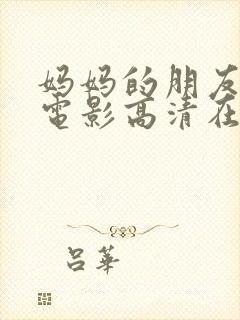 妈妈的朋友
電影高清在
吕華